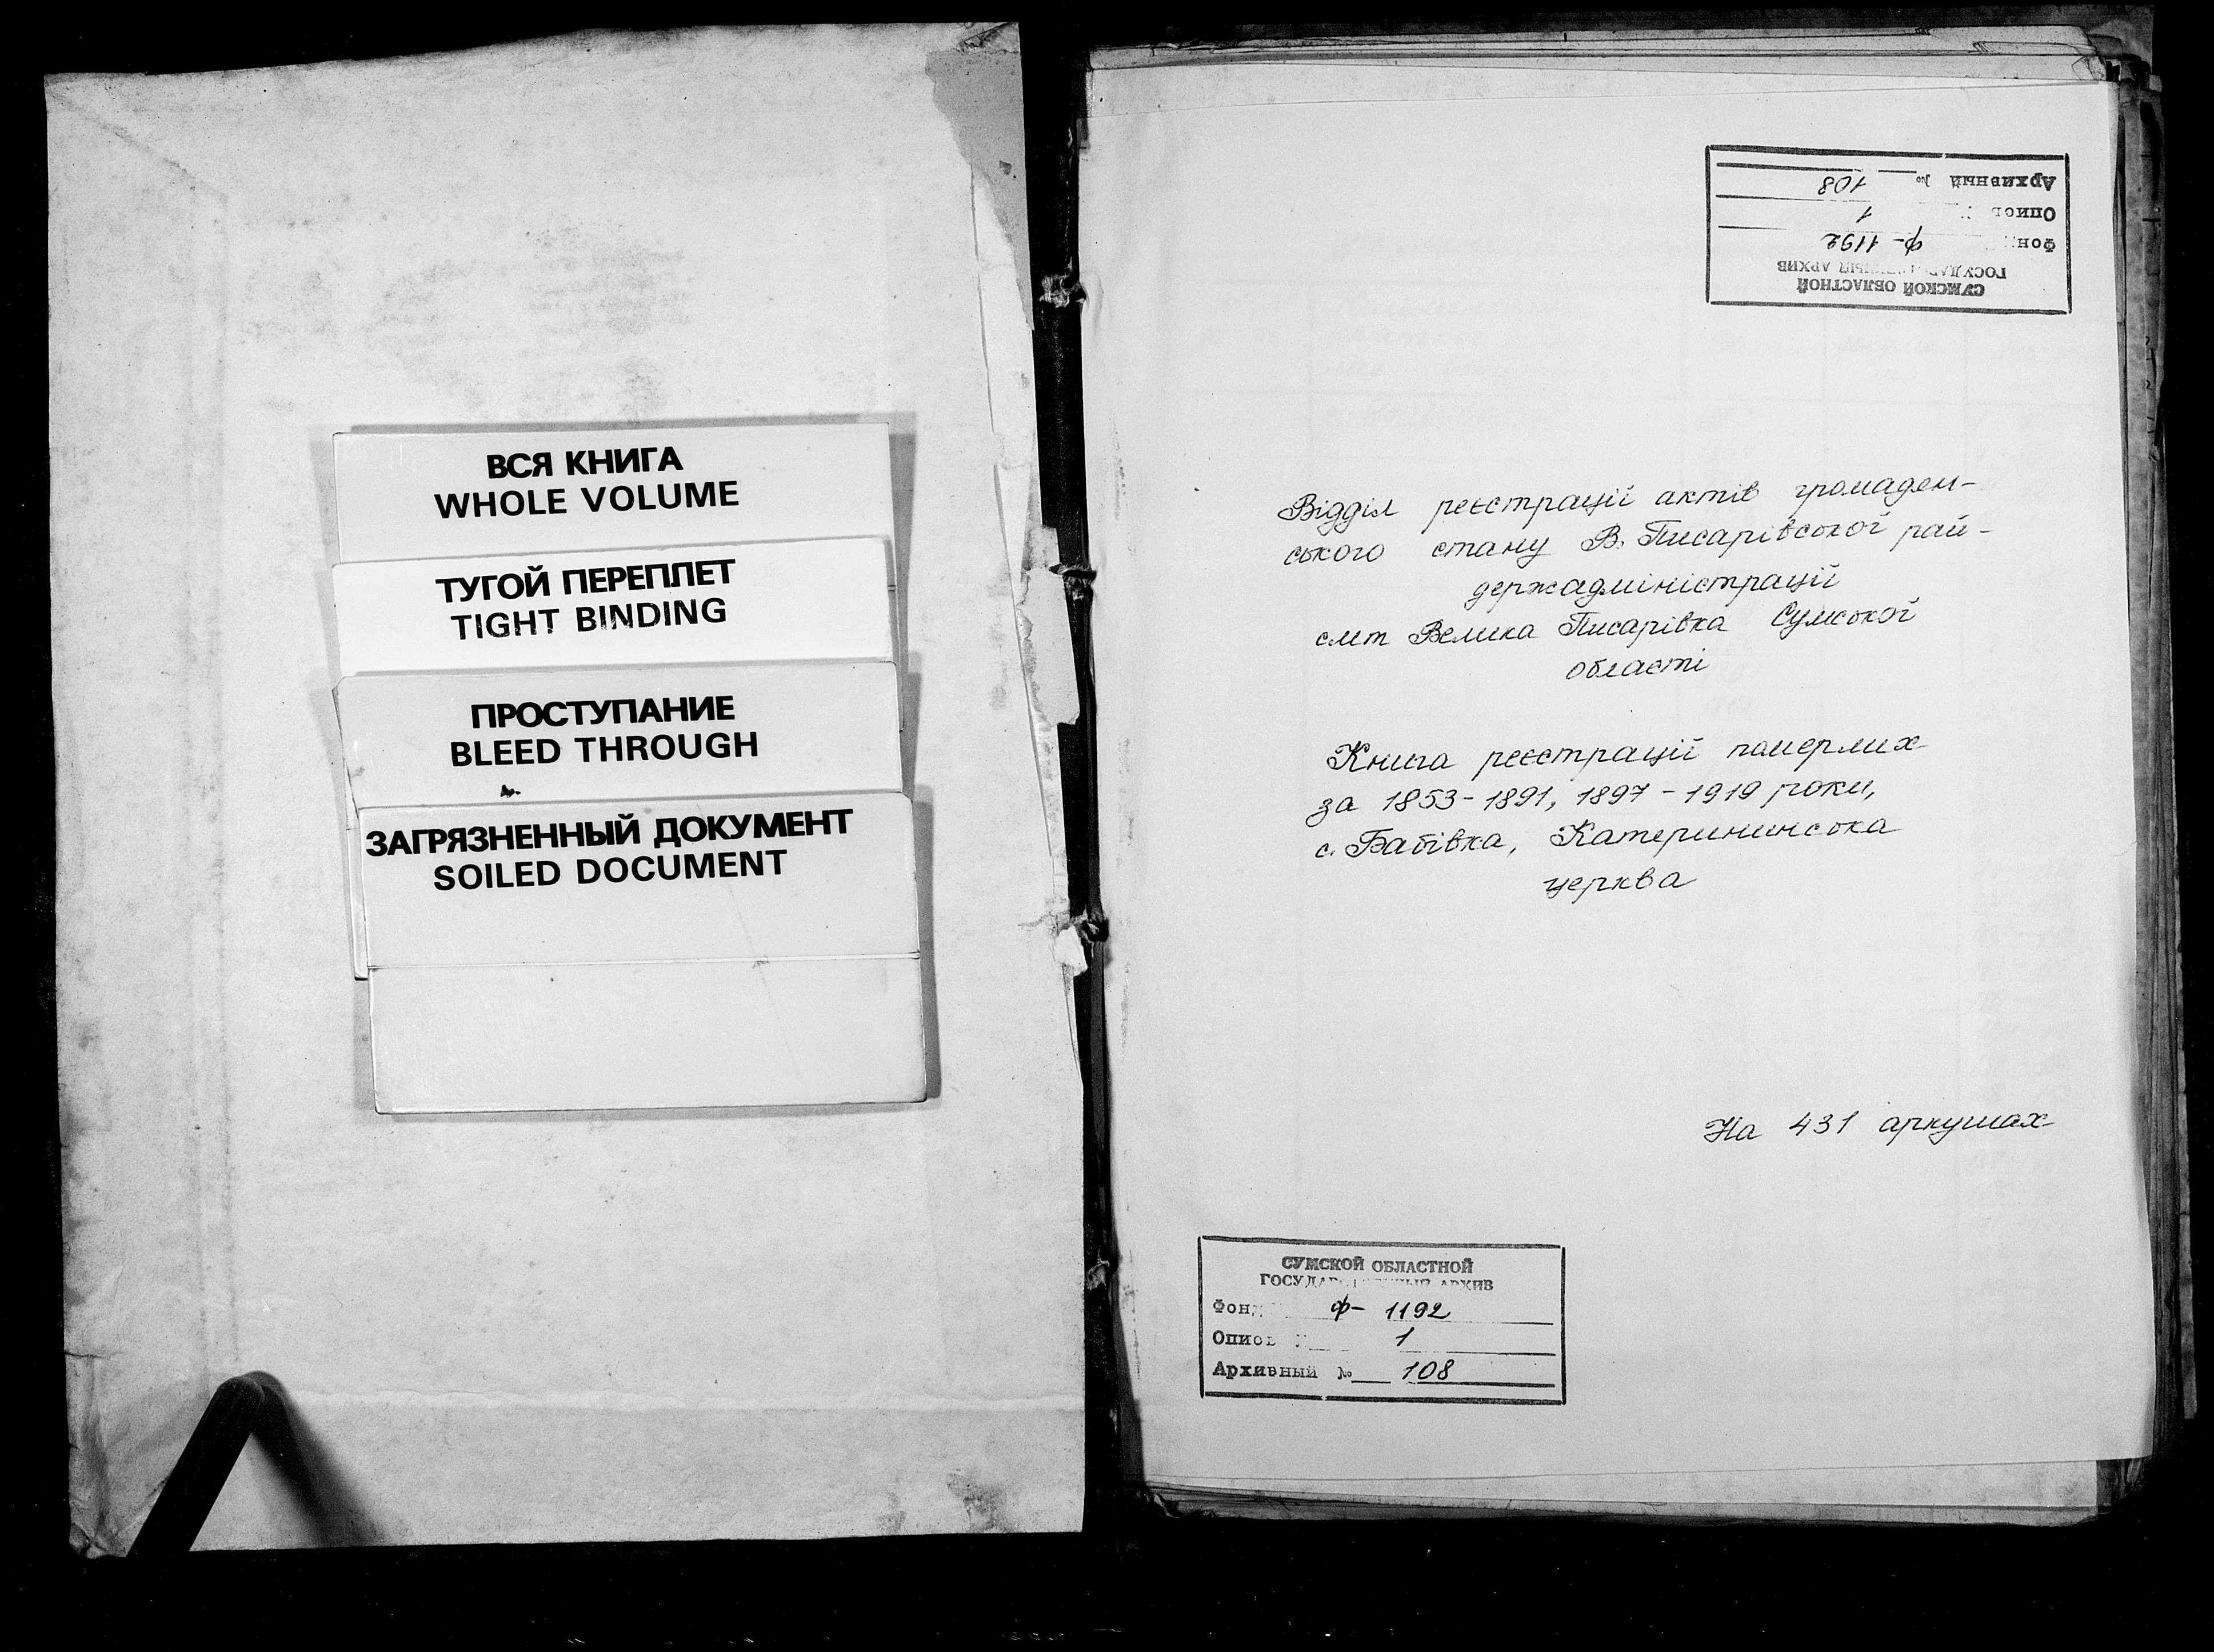 ВСЯ КНИГА
WHOLE VOLUME
ТУГОЙ ПЕРЕПЛЕТ
TIGHT BINDING
ПРОСТУПАНИЕ
BLEED THROUGH
ЗАГРЯЗНЕННЫЙ ДОКУМЕНТ
SOILED DOCUMENT
СУМСКОЙ ОБЛАСТНОЙ
ГОСУДАРСТВЕННЫЙ АРХИВ
Фонд ф- 1192
Опись 1
Архивный № 108
Відділ реєстрації актів громаден-
ського стану В. Писарівської рай-
держадміністрації
смт Велика Писарівка Сумської
області
Книга реєстрації померлих
за 1853-1891, 1897-1919 роки,
с. Бабівка, Катерининська
церква
На 431 аркушах
СУМСКОЙ ОБЛАСТНОЙ
ГОСУДАРСТВЕННЫЙ АРХИВ
Фонд ф- 1192
Опись 1
Архивный № 108